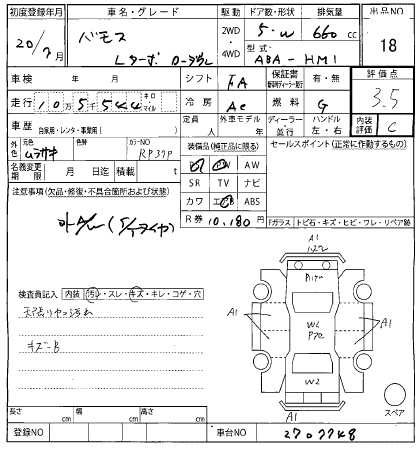 初度登録年月 車名・グレード 駆動 ドア数・形状 排気量 出品NO
20/7月 バモス 2WD 4WD 5・W 660cc 18
Lターボ ローダウン 型式 ABA-HM1
車検 年 月 日 シフト FA 保証書 有・無 評価点 3.5
走行 10万5千544 キロ マイル 冷房 AC 燃料 G
車歴 自家用・レンタ・事業用( ) 定員 人 外車モデル 年 ディーラー 並行 ハンドル 左・右 内装評価 C
外色 元色 ムラサキ 色替 カラーNO RP37P 装備品(純正品に限る) セールスポイント(正常に作動するもの)
PS PW AW
名義変更期限 月 日迄 積載 t SR TV ナビ
注意事項(欠品・修復・不具合箇所および状態) カワ エアB ABS
R券 10,180円 Fガラス トビ石・キズ・ヒビ・ワレ・リペア跡
A1
検査員記入 内装 汚レ・スレ・キズ・キレ・コゲ・穴
A1 W2 A1
キズ-B
W2
A1
スペア
長さ cm 幅 cm 高さ cm
登録NO 車台NO 2707748